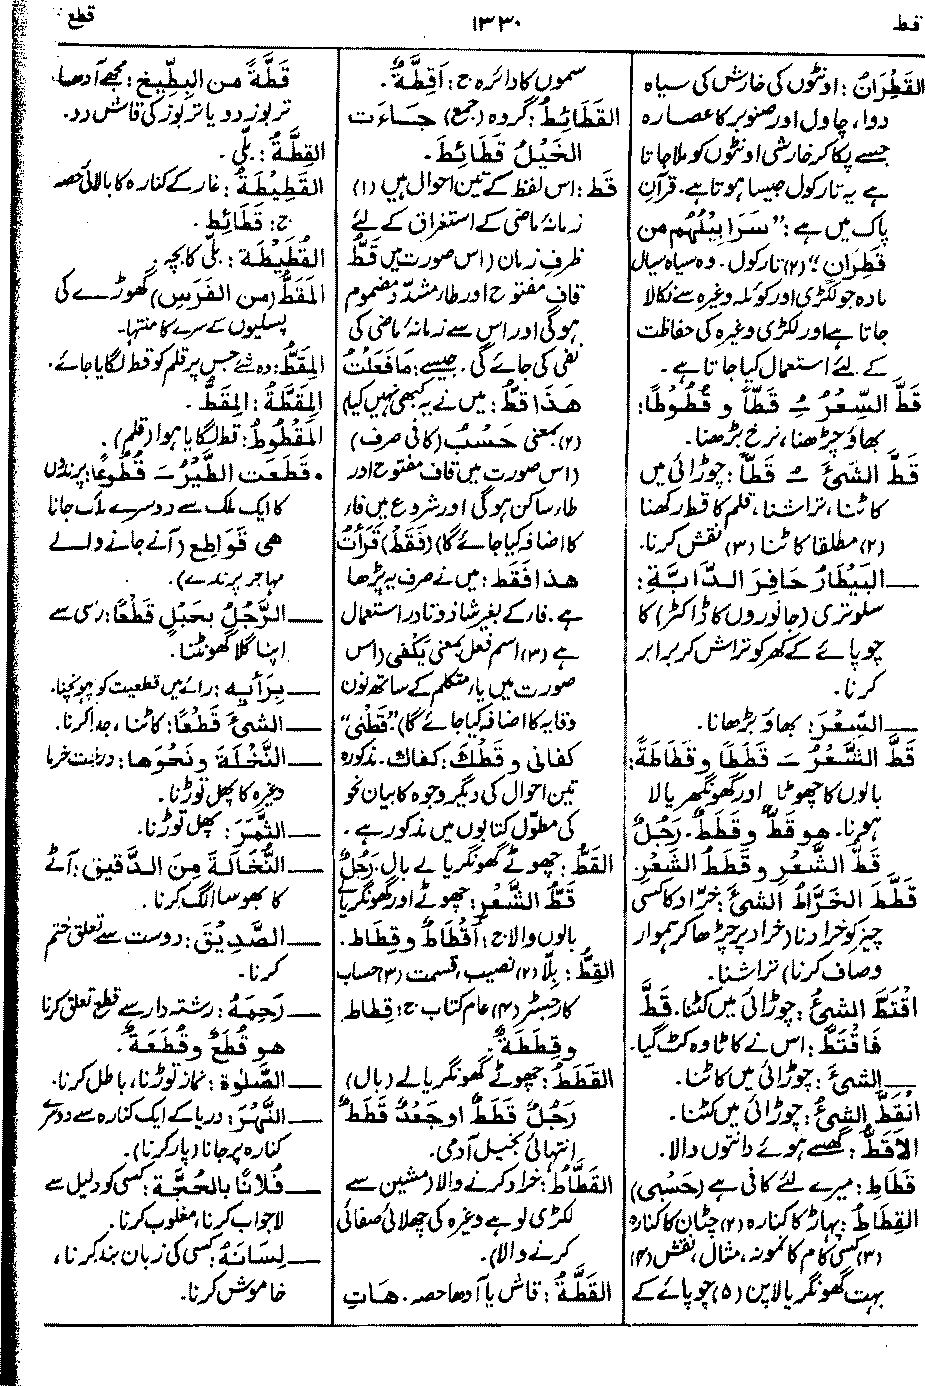 قط
۱۳۳۰
قطع
القَطِرَانُ : اونٹوں کی خارش کی سیاہ
دوا، چاول اور صنوبر کا عصارہ
جسے پکا کر خارشی اونٹوں کو ملا جاتا
ہے یہ تارکول جیسا ہوتا ہے۔ قرآن
پاک میں ہے : ”سَرَابِيلُهُم من
قَطِرَان“ (۲) تارکول۔ وہ سیاہ سیال
مادہ جو لکڑی اور کوئلہ وغیرہ سے نکالا
جاتا ہے اور لکڑی وغیرہ کی حفاظت
کے لئے استعمال کیا جاتا ہے۔
قَطَّ السِّعْرُ ـُ قَطًّا و قُطُوطًا :
بھاؤ چڑھنا، نرخ بڑھنا۔
قَطَّ الشَّئَ ـُ قَطًّا : چوڑائی میں
کاٹنا، تراشنا، قلم کا قط رکھنا
(۲) مطلقا کاٹنا (۳) نقش کرنا۔
ـــ البَيْطَارُ حَافِرَ الدَّابَّةِ :
سلوتری (جانوروں کا ڈاکٹر) کا
چوپائے کے کھر کو تراش کر برابر
کرنا۔
ـــ السِّعْرَ : بھاؤ بڑھانا۔
قَطَّ الشَّعْرُ ـَ قَطَطًا وقَطَاطَةً :
بالوں کا چھوٹا اور گھونگھریالا
ہونا۔ هو قَطٌّ وقَطَطٌ۔ رَجُلٌ
قَطُّ الشَّعْرِ وقَطَطُ الشَّعْرِ۔
قَطَّطَ الخَرَّاطُ الشَّئَ : خرّاد کا کسی
چیز کو خرادنا (خراد پر چڑھا کر ہموار
و صاف کرنا) تراشنا۔
اقْتَطَّ الشئُ : چوڑائی میں کٹنا۔ قَطَّ
فَاقْتَطَّ : اس نے کاٹا وہ کٹ گیا۔
ـــ الشئَ : چوڑائی میں کاٹنا۔
انْقَطَّ الشئُ : چوڑائی میں کٹنا۔
الأقَطُّ : گھسے ہوئے دانتوں والا۔
قَطَاطِ : میرے لئے کافی ہے (حَسْبِی)
القِطَاطُ : پہاڑ کا کنارہ (۲) چٹان کا کنارہ
(۳) کسی کام کا نمونہ، مثال، نقش (۴)
بہت گھونگریالا پن (۵) چوپائے کے
سموں کا دائرہ ج : أقِطَّةٌ۔
القَطَائِطُ : گروہ (جمع) جَاءَت
الخَيْلُ قَطَائِطَ۔
قَط : اس لفظ کے تین احوال ہیں (۱)
زمانۂ ماضی کے استغراق کے لئے
ظرفِ زمان (اس صورت میں قَطُّ
قاف مفتوح اور طار مشدّد مضموم
ہوگی اور اس سے زمانۂ ماضی کی
نفی کی جائے گی۔ جیسے : مَا فَعَلْتُ
هَذَا قَطُّ : میں نے یہ کبھی نہیں کیا)
(۲) بمعنی حَسْبُ (کافی صرف)
(اس صورت میں قاف مفتوح اور
طار ساکن ہوگی اور شروع میں فار
کا اضافہ کیا جائے گا) (فَقَطْ) قَرَأتُ
هذا فَقَط : میں نے صرف یہ پڑھا
ہے۔ فار کے بغیر شاذ و نادر استعمال
ہے (۳) اسم فعل بمعنی یَکْفِی (اس
صورت میں یار متکلم کے ساتھ نون
وقایہ کا اضافہ کیا جائے گا) ”قَطْنِی“
كفانی وقَطْكَ : كفاك۔ مذکورہ
تین احوال کی دیگر وجوہ کا بیان نحو
کی مطوّل کتابوں میں مذکور ہے۔
القَطُّ : چھوٹے گھونگریالے بال رَجُلٌ
قَطُّ الشَّعْرِ : چھوٹے اور گھونگریالے
بالوں والا ج : أقْطَاطٌ وقِطَاط۔
القِطُّ : بلّا (۲) نصیب، قسمت (۳) حساب
کا رجسٹر (۴) عام کتاب ج : قِطاط
وقِطَطَةٌ۔
القَطَطُ : چھوٹے گھونگریالے (بال)
رَجُلٌ قَطَطٌ او جَعْدٌ قَطَطٌ
انتہائی بخیل آدمی۔
القَطَّاطُ : خراد کرنے والا (مشین سے
لکڑی لوہے وغیرہ کی چھلائی صفائی
کرنے والا)۔
القَطَّةُ : قاش یا آدھا حصہ۔ هَاتِ
قَطَّةً من البِطِّيخِ : مجھے آدھا
تربوز دو یا تربوز کی قاش دو۔
القِطَّةُ : بلّی۔
القَطِيطَةُ : غار کے کنارہ کا بالائی حصہ
ج : قَطَائِطُ۔
القُطَيْطَة : بلّی کا بچہ۔
المَقَطُّ (من الفَرَسِ) گھوڑے کی
پسلیوں کے سرے کا منتہا۔
المِقَطُّ : وہ شئے جس پر قلم کو قط لگایا جائے۔
المِقَطَّةُ : المِقَطُّ۔
المَقْطُوطُ : قط لگایا ہوا (قلم)۔
• قَطَعَت الطَّيْرُ ـَ قُطُوعًا : پرندوں
کا ایک ملک سے دوسرے ملک جانا
هی قَوَاطِع (آنے جانے والے
مہاجر پرندے)۔
ـــ الرَّجُلُ بِحَبْلٍ قَطْعًا : رسی سے
اپنا گلا گھونٹنا۔
ـــ بِرَأيِهِ : رائے میں قطعیت کو پہونچنا۔
ـــ الشئَ قَطْعًا : کاٹنا، جدا کرنا۔
ـــ النَّخْلَةَ ونَحْوَها : درخت خرما
وغیرہ کا پھل توڑنا۔
ـــ الثَّمَرَ : پھل توڑنا۔
ـــ النُّخَالَةَ مِنَ الدَّقِيقِ : آٹے
کا بھوسا الگ کرنا۔
ـــ الصَّدِيقَ : دوست سے تعلق ختم
کرنا۔
ـــ رَحِمَهُ : رشتہ دار سے قطع تعلق کرنا
هو قُطَعٌ وقُطَعَةٌ۔
ـــ الصَّلٰوةَ : نماز توڑنا، باطل کرنا۔
ـــ النَّهْرَ : دریا کے ایک کنارہ سے دوسرے
کنارہ پر جانا (پار کرنا)۔
ـــ فُلَانًا بِالحُجَّةِ : کسی کو دلیل سے
لاجواب کرنا، مغلوب کرنا۔
ـــ لِسَانَهُ : کسی کی زبان بند کرنا،
خاموش کرنا۔